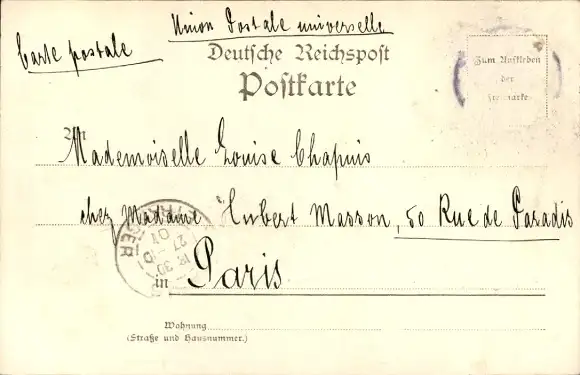 Union Postale universelle
Carte postale
Deutsche Reichspost
Postkarte
Zum Aufkleben
der
Freimarke
An
Mademoiselle Louise Chapuis
chez Madame Hubert Masson, 50 Rue de Paradis
in Paris
Wohnung
(Straße und Hausnummer.)